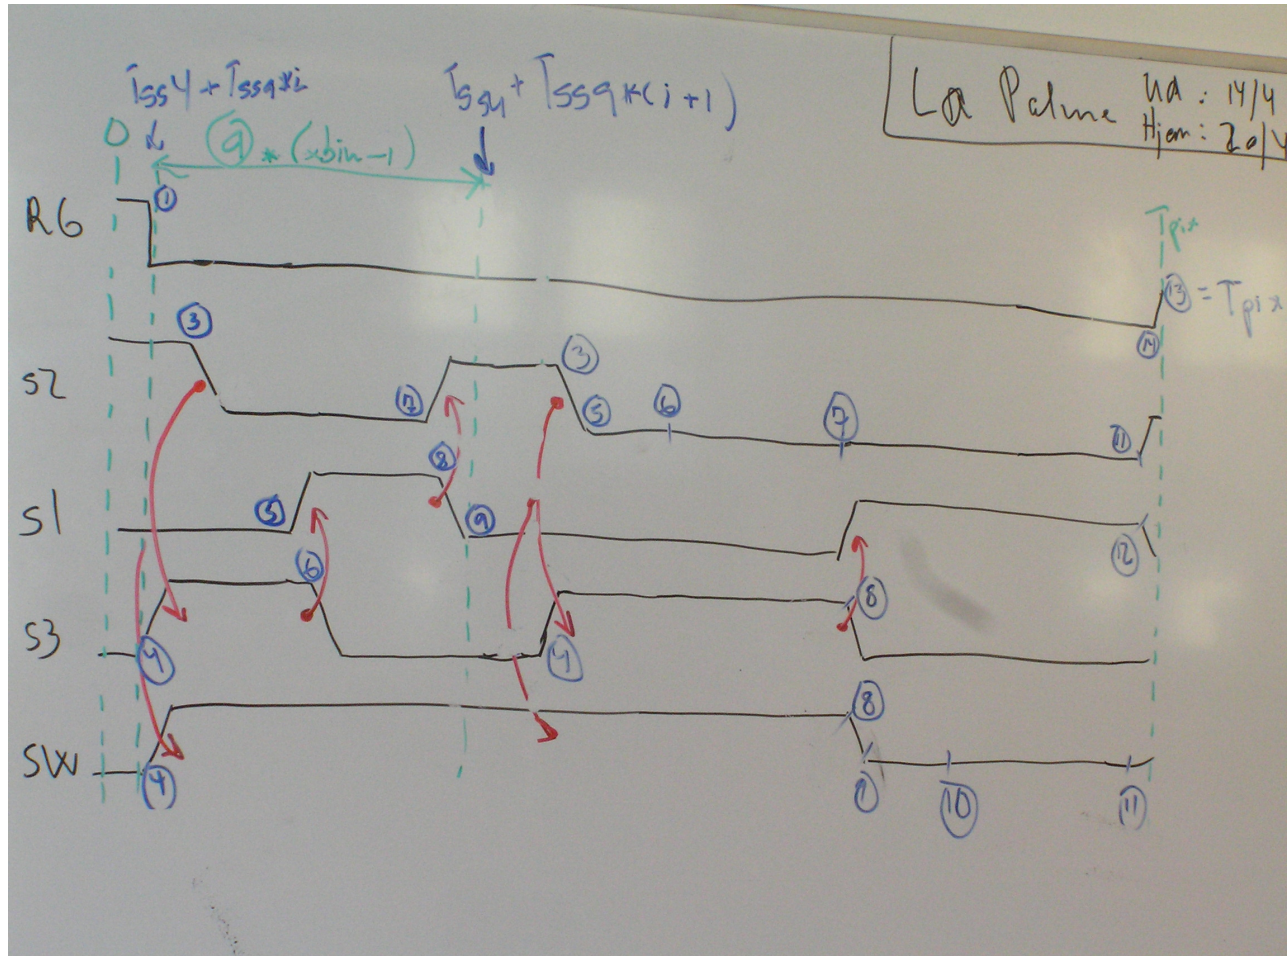 Tss4 + Tss9*i
Tss4 + Tss9*(i+1)
La Palma
Ud: 14/4
Hjem: 20/4
0
⑨ * (xbin-1)
RG
①
Tpix
⑬ = Tpix
⑭
S2
③
⑦
③
⑤
⑥
⑦
⑪
S1
⑤
⑧
⑨
⑫
S3
④
⑥
④
⑧
SW
④
⑧
⑩
⑪